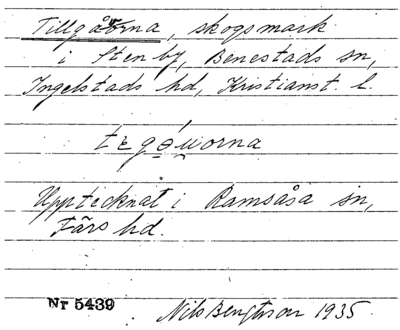 Tillgåorna, skogsmark
i Stenby, Benestads sn,
Ingelstads hd, Kristianst. l.
Upptecknat i Ramsåsa sn,
Färs hd.
Nr 5439
Nils Bengtsson 1935